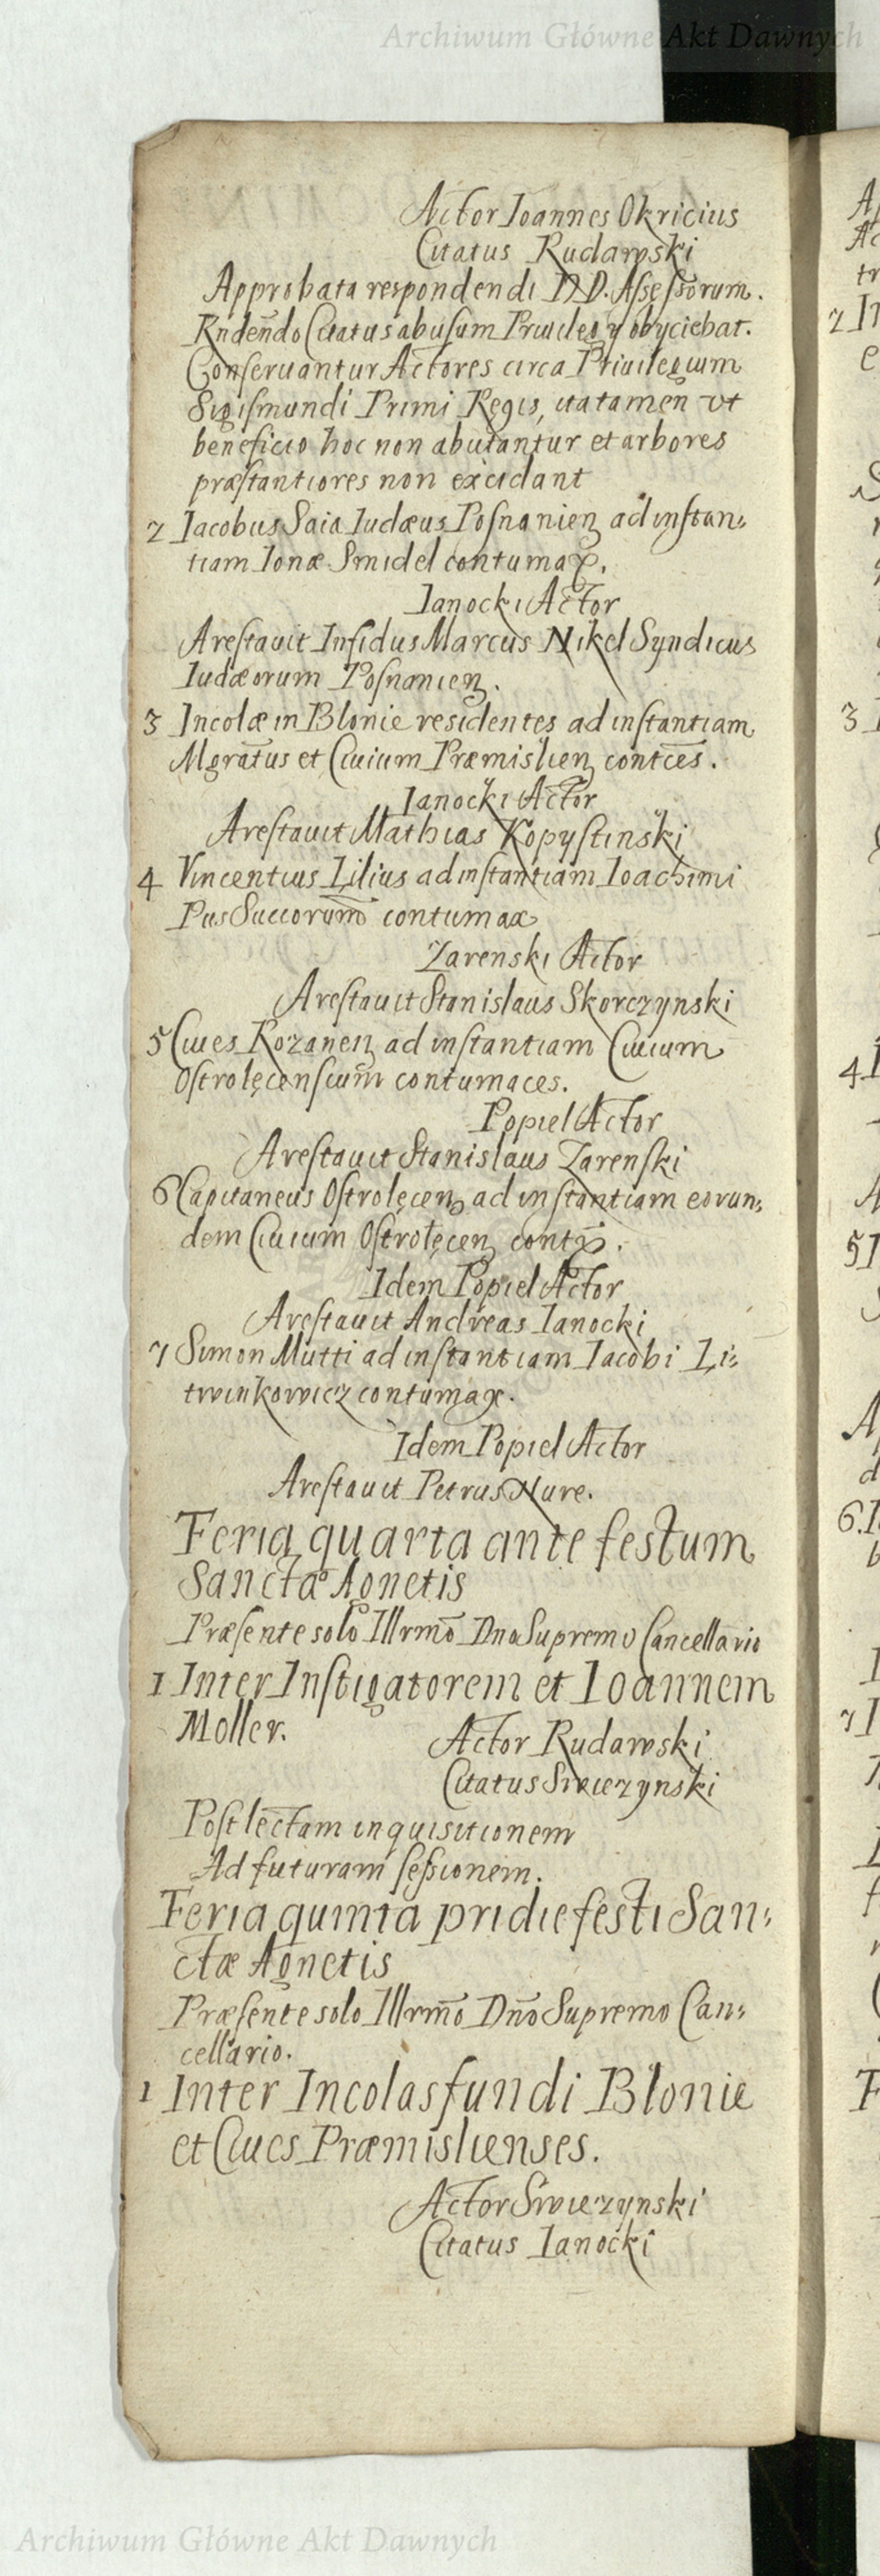 Archiwum Główne Akt Dawnych
Actor Ioannes Okricius
Citatus Rudawski
Approbata respondendi DD. Assessorum.
Rñdendo Citatus abusum Priuilegÿ obyciebat.
Conseruantur Actores circa Priuilegium
Sigismundi Primi Regis, ita tamen vt
beneficio hoc non abutantur et arbores
præstantiores non excidant
2 Iacobus Saia Iudæus Posnanien ad instan:
tiam Ionæ Smidel contumax.
Ianocki Actor
Arestauit Infidus Marcus Nikel Syndicus
Iudæorum Posnanien.
3 Incolæ in Blonie residentes ad instantiam
Mgratus et Ciuium Præmislien contces.
Ianocki Actor
Arestauit Mathias Kopystinski
4 Vincentius Lilius ad instantiam Ioachimi
contumax
Zarenski Actor
Arestauit Stanislaus Skorczynski
5 Ciues Rozanen ad instantiam Ciuium
Ostrolęcensium contumaces.
Popiel Actor
Arestauit Stanislaus Zarenski
6 Capitaneus Ostrolęcen ad instantiam eorun:
dem Ciuium Ostrolęcen contx.
Idem Popiel Actor
Arestauit Andreas Ianocki
7 Simon Mutti ad instantiam Iacobi Li:
twinkowicz contumax.
Idem Popiel Actor
Arestauit Petrus Nure.
Feria quarta ante festum
Sanctæ Agnetis
Præsente solo Illrmo Dno Supremo Cancellario
1 Inter Instigatorem et Ioannem
Moller.
Actor Rudawski
Citatus Swieczynski
Post lectam inquisitionem
Ad futuram sessionem.
Feria quinta pridie festi San:
ctæ Agnetis
Præsente solo Illrmo Dno Supremo Can:
cellario.
1 Inter Incolas fundi Blonie
et Ciues Præmislienses.
Actor Swieczynski
Citatus Ianocki
Archiwum Główne Akt Dawnych